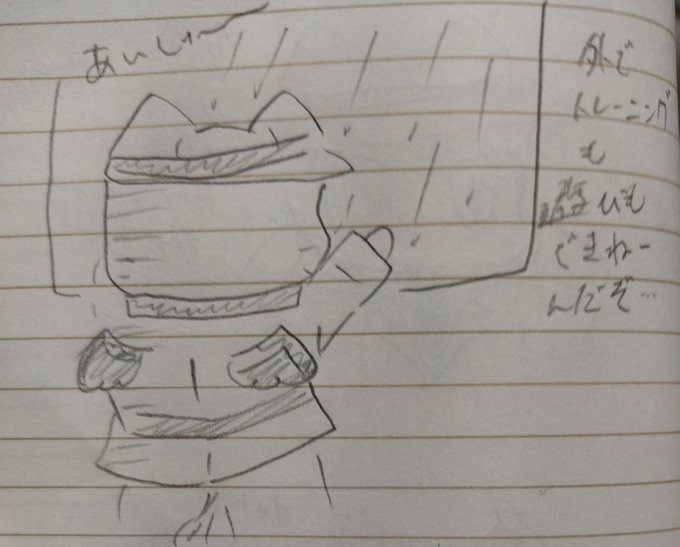 あいしゃー
外で
トレーニング
も
遊びも
できねー
んだぞ…